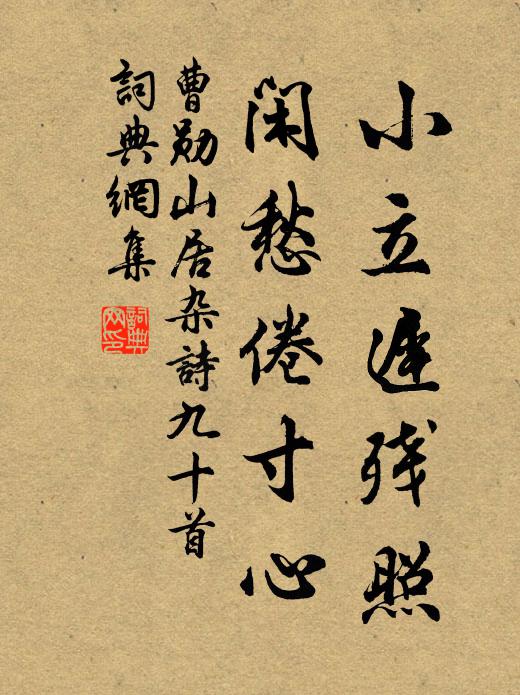 小立遲残照
閑愁倦寸心
曹勛山居杂詩九十首
詞典網集
詞典網印